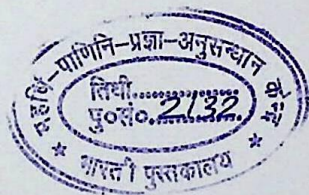 महर्षि-पाणिनि-प्रज्ञा-अनुसन्धान
तिथी..................
पु०सं० 2132
* भारती पुस्तकालय *